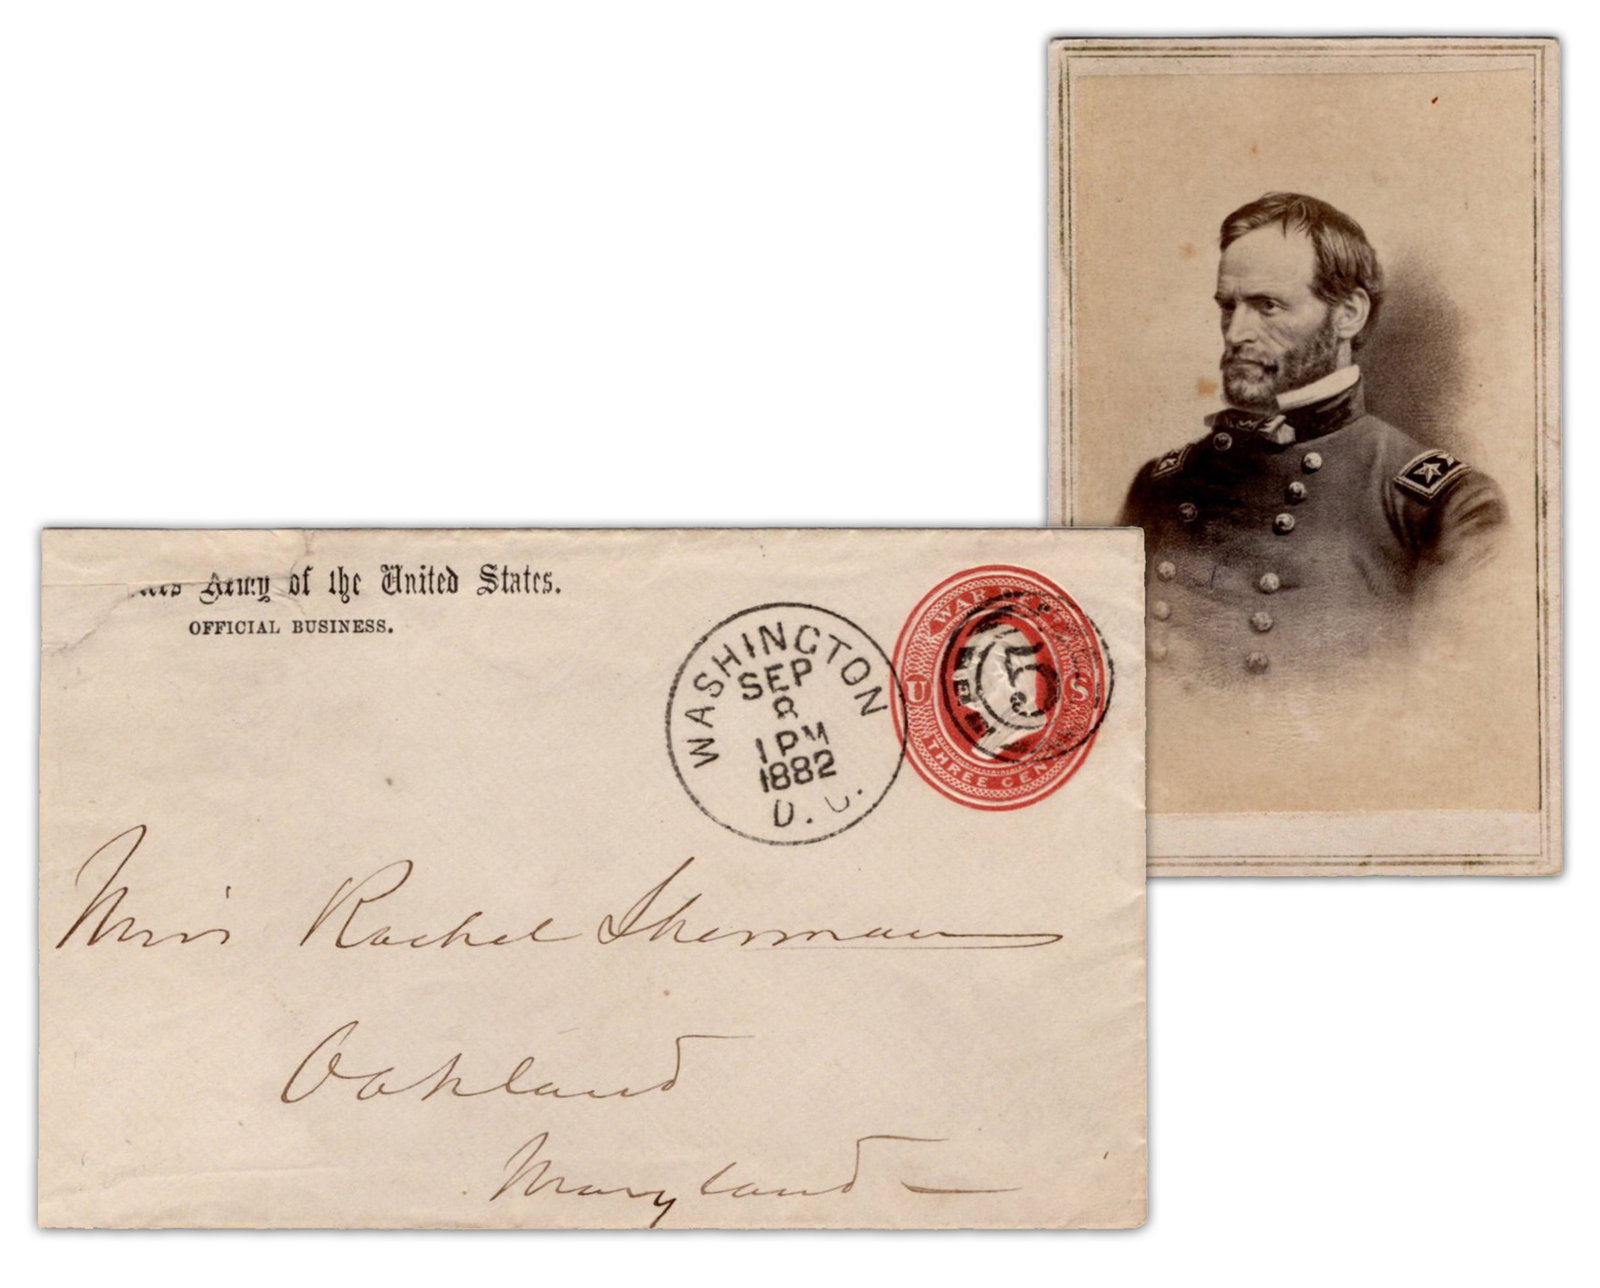 Army of the United States.
OFFICIAL BUSINESS.
WASHINGTON
SEP
8
1 PM
1882
D. C.
WAR DEPT
U S
THREE CENTS
Miss Rachel Sherman
Oakland
Maryland